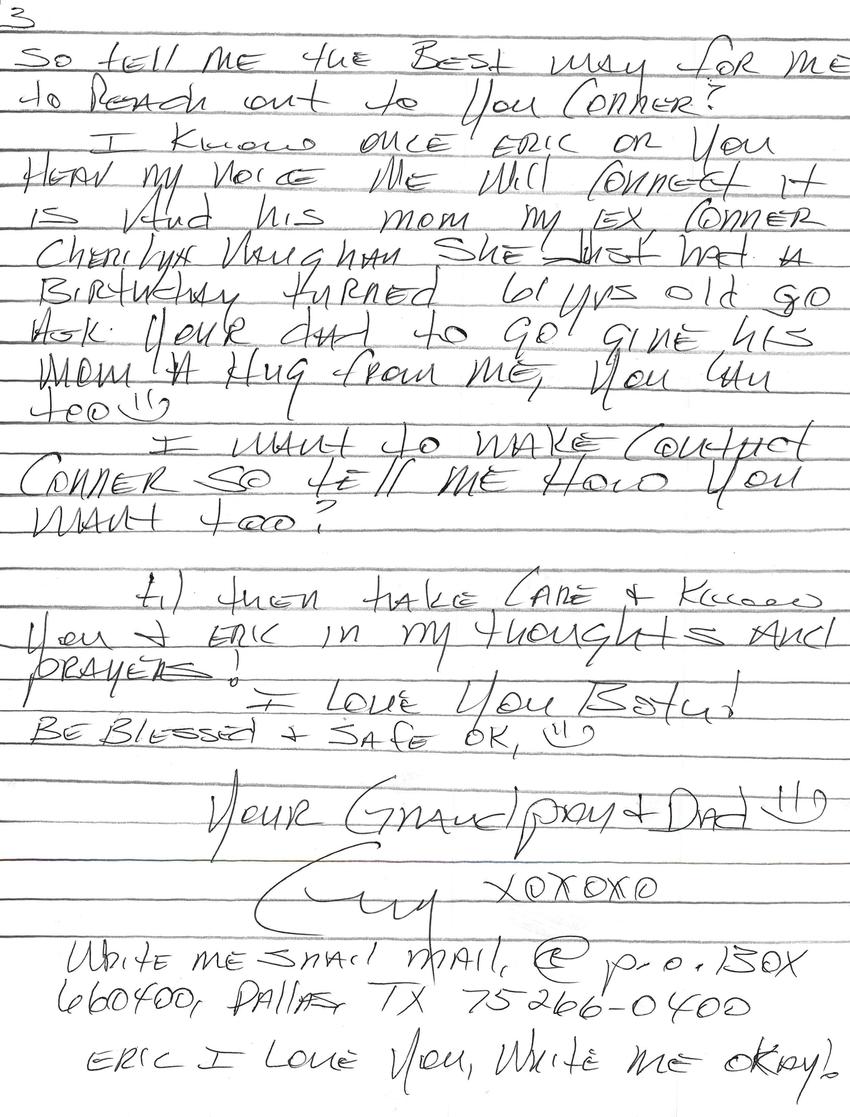 3
So tell me the Best way for me
to Reach out to you Conner?
I know once Eric or you
Hear my voice we will connect it
is And his mom my Ex, Conner
Cherilyn Vaughan She Just had a
Birthday turned 61 yrs old go
Ask your dad to go give his
mom A Hug from me, you can
too
I want to make Contact
Conner so tell me How you
want too?
til then take Care & Know
you & Eric in my thoughts And
prayers!
I Love you Both!
Be Blessed & Safe OK,
Your Grandpay & Dad
xoxoxo
Write me snail mail, @ p.o. Box
660400, Dallas, TX 75266-0400
Eric I Love you, Write me okay!